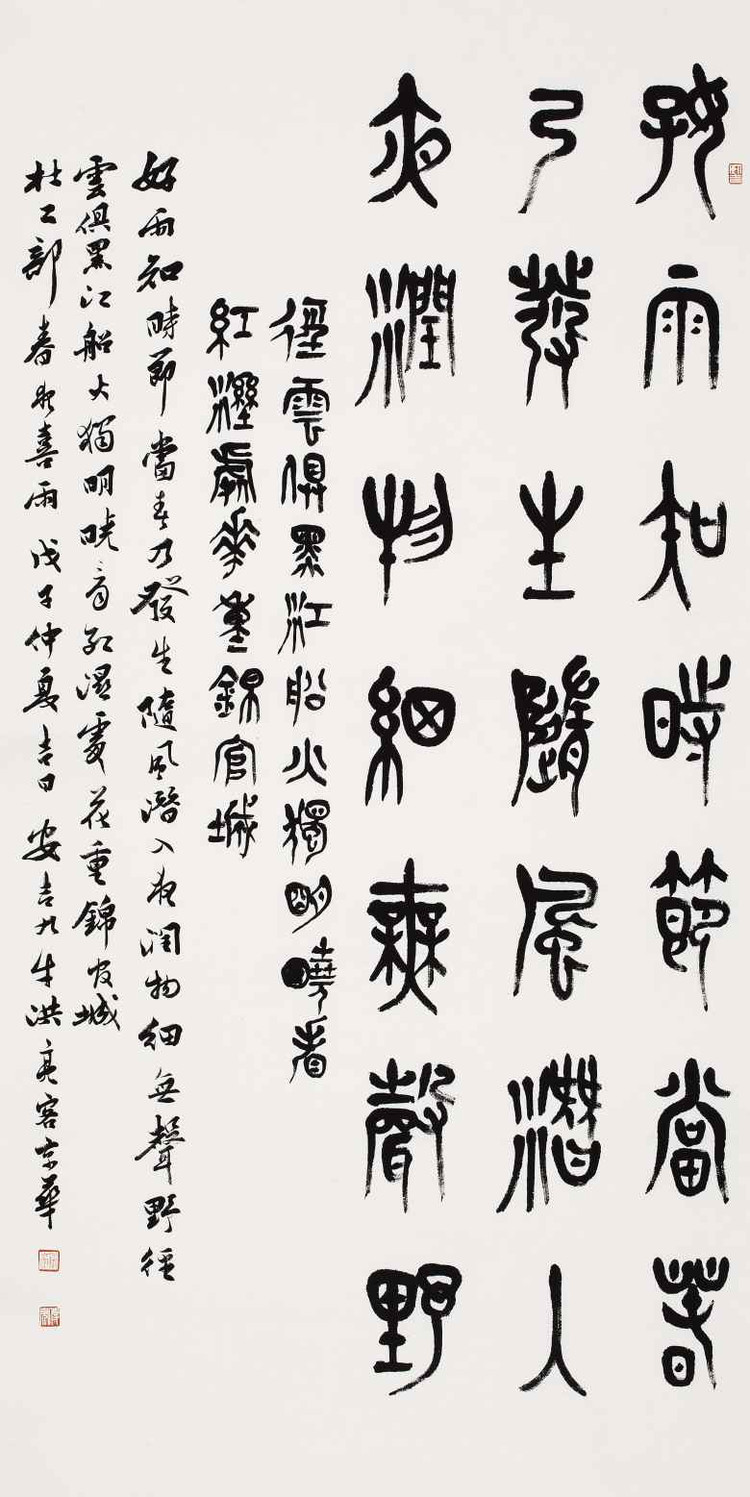 好雨知時節當春
乃發生隨風潛入
夜潤物細無聲野
徑雲俱黑江船火獨明曉看
紅溼處花重錦官城
好雨知時節當春乃發生隨風潛入夜潤物細無聲野徑
雲俱黑江船火獨明曉看紅濕處花重錦官城
杜工部春夜喜雨戊子仲夏吉日安吉九牛洪亮客京華